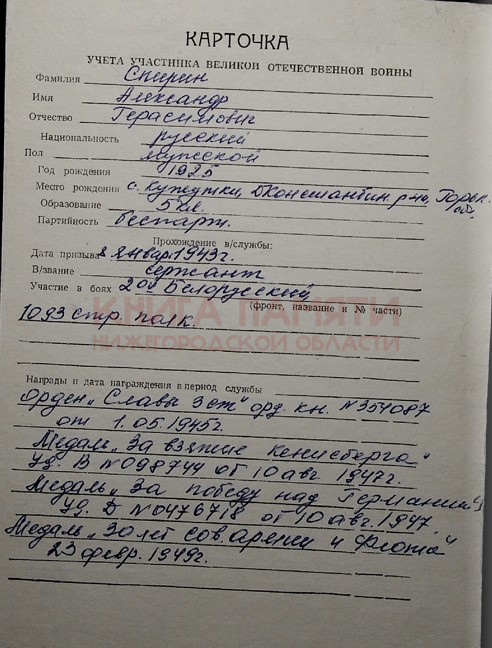 КАРТОЧКА
УЧЕТА УЧАСТНИКА ВЕЛИКОЙ ОТЕЧЕСТВЕННОЙ ВОЙНЫ
Фамилия Спирин
Имя Александр
Отчество Герасимович
Национальность русский
Пол мужской
Год рождения 1925
Место рождения с. Кужутки, Д Константин. р-на, Горьк. об.
Образование 5 кл.
Партийность беспарт.
Прохождение в/службы:
Дата призыва 8 январ 1943г.
В/звание сержант
Участие в боях 2ой Белорусский,
(фронт, название и № части)
1093 стр. полк.
КНИГА ПАМЯТИ
НИЖЕГОРОДСКОЙ ОБЛАСТИ
Награды и дата награждения в период службы
Орден „Славы 3 ст" орд. кн. N 354087
от 1.05.1945г.
Медаль „За взятие Кенисберга"
Уд. В N 098744 от 10 авг. 1947г.
Медаль „За победу над Германией"
Уд. Б N 0476718 от 10 авг. 1947.
Медаль „30 лет сов. армии и Флота"
23 февр. 1949г.